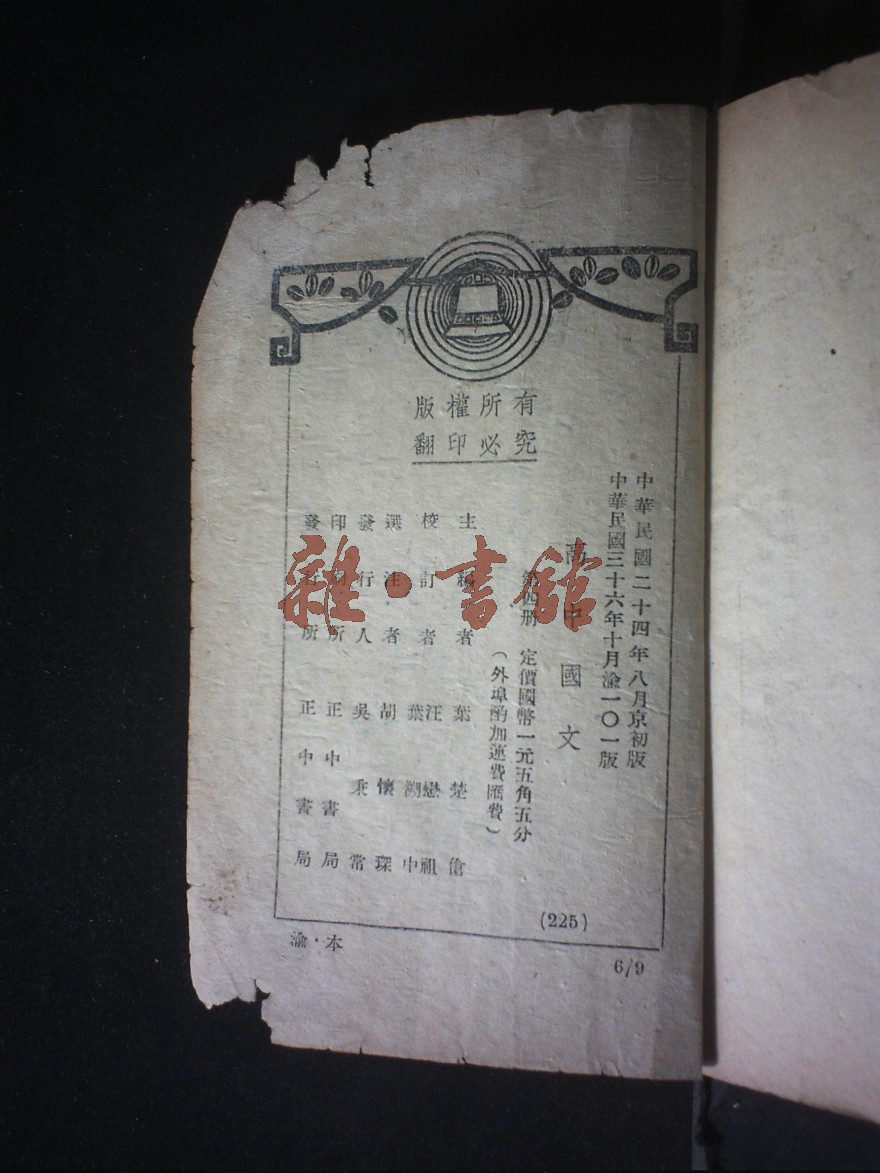 版權所有
翻印必究
中華民國二十四年八月京初版
中華民國三十六年十月渝一〇一版
高中國文
第四册 定價國幣一元五角五分
(外埠酌加運費匯費)
主編者 葉楚傖
校訂者 汪懋祖 葉溯中
選注者 胡懷琛
發行人 吳秉常
印刷所 正中書局
發行所 正中書局
(225)
渝·本
6/9
雜·書館